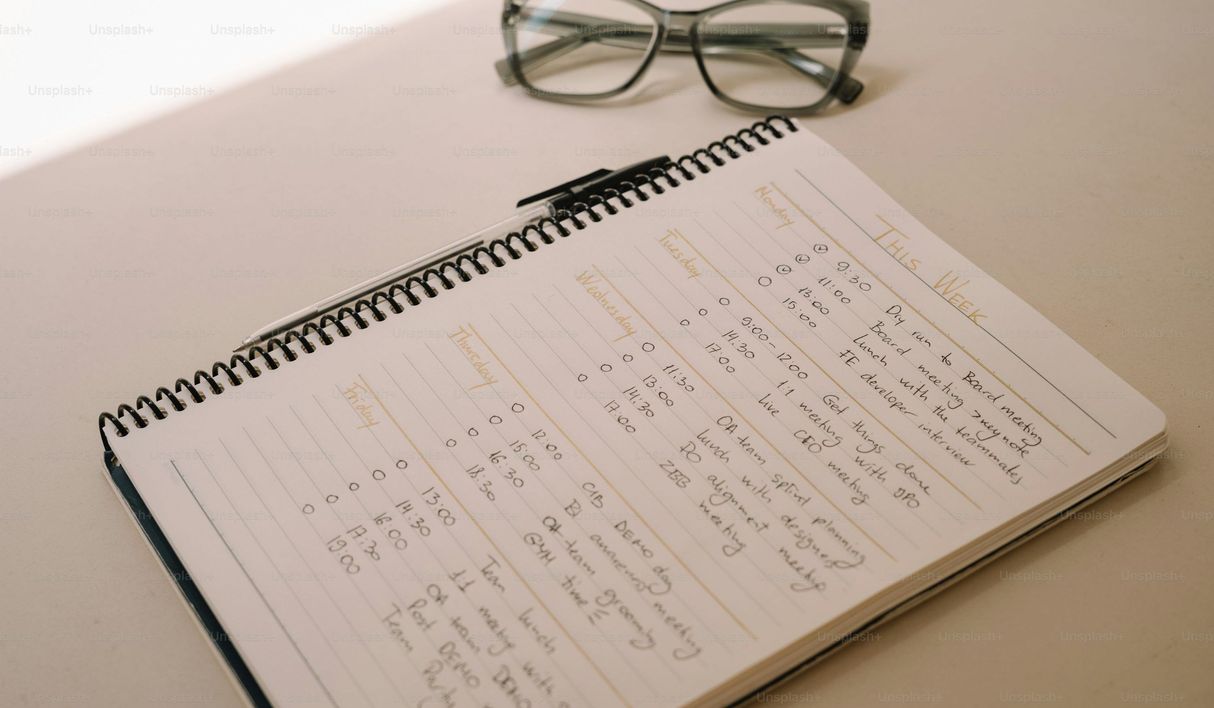 THIS WEEK
Monday
9:30 Dry run to Board meeting
11:00 Board meeting > keynote
13:00 Lunch with the teammates
15:00 FE developer interview
Tuesday
9:00 - 12:00 Get things done
14:30 1:1 meeting with gPO
17:00 Live CEO meeting
Wednesday
11:30 OA-team splint planning
13:00 Lunch with designer
14:30 PO alignment meetup
17:00 ZBB meeting
Thursday
12:00 DEMO day
15:00 BI awareness meeting
16:30 OA-team grooming
18:30 GYM time
Friday
13:00 Team lunch
14:30 1:1 meeting with
16:00 OA team DEMO
17:30 Post DEMO
19:00 Team Party